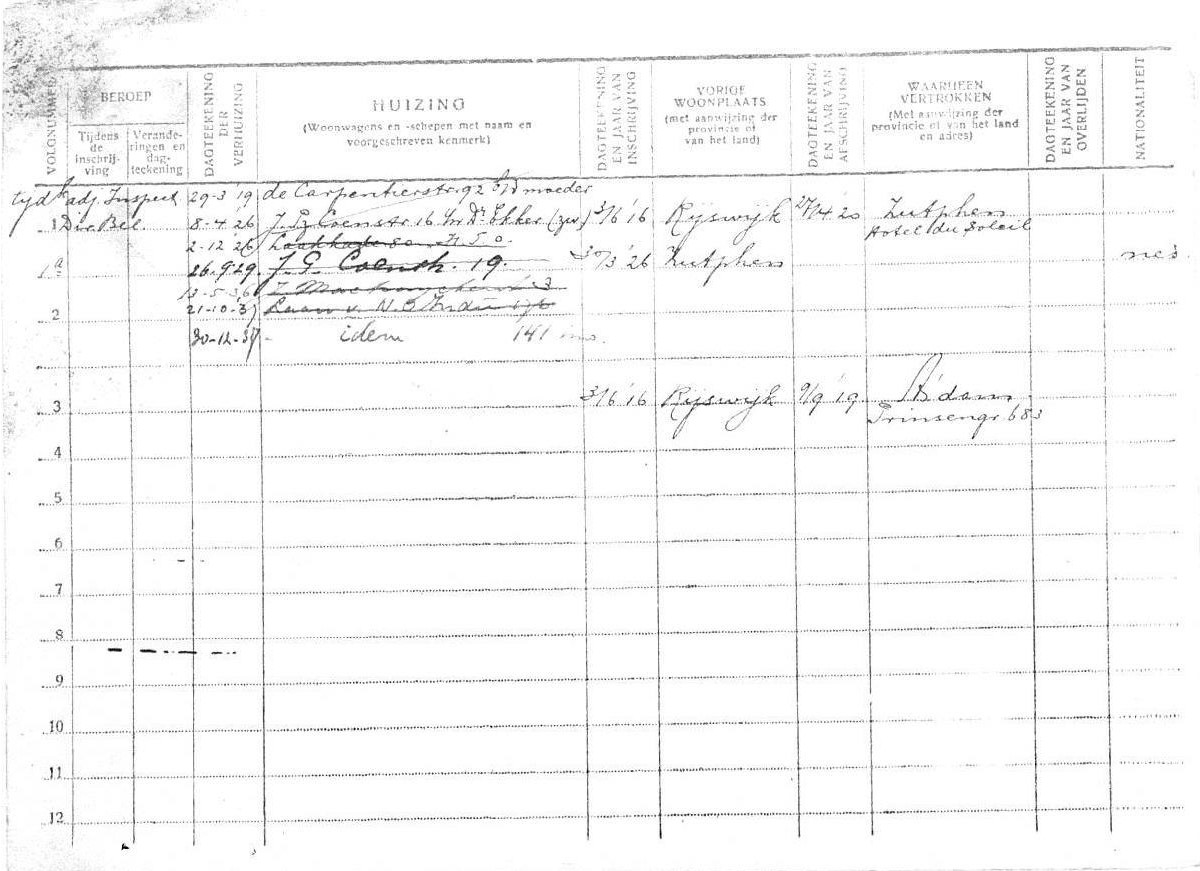 VOLGNUMMER
BEROEP
Tijdens de inschrijving
Veranderingen en dagteekening
DAGTEEKENING DER VERHUIZING
HUIZING
(Woonwagens en -schepen met naam en
voorgeschreven kenmerk)
DAGTEEKENING EN JAAR VAN INSCHRIJVING
VORIGE
WOONPLAATS
(met aanwijzing der
provincie of
van het land)
DAGTEEKENING EN JAAR VAN AFSCHRIJVING
WAARHEEN
VERTROKKEN
(Met aanwijzing der
provincie of van het land
en adres)
DAGTEEKENING EN JAAR VAN OVERLIJDEN
NATIONALITEIT
tijd adj. Inspect. 29-3 '19 de Carpentierstr. 92 moeder
1 Dir. Bel. 8-4 26 J. Pz Coenstr 16 3/6 '16 Rijswijk 27/4 20 Zutphen
Hotel du Soleil
2-12 26
1a 26-9-29 J. G. Coenstr. 19. 30/3 '26 Zutphen ned
13-5-36
21-10-37 Laan v. N. O.
2
30-12-37 idem 141
3 3/6 '16 Rijswijk 9/9 '19 A'dam
Prinsengr. 683
4
5
6
7
8
9
10
11
12